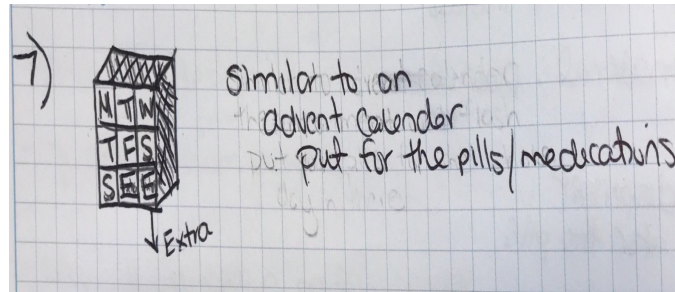 7)
M T W
T F S
S E E
Extra
Similar to an
advent calender
put for the pills/medications